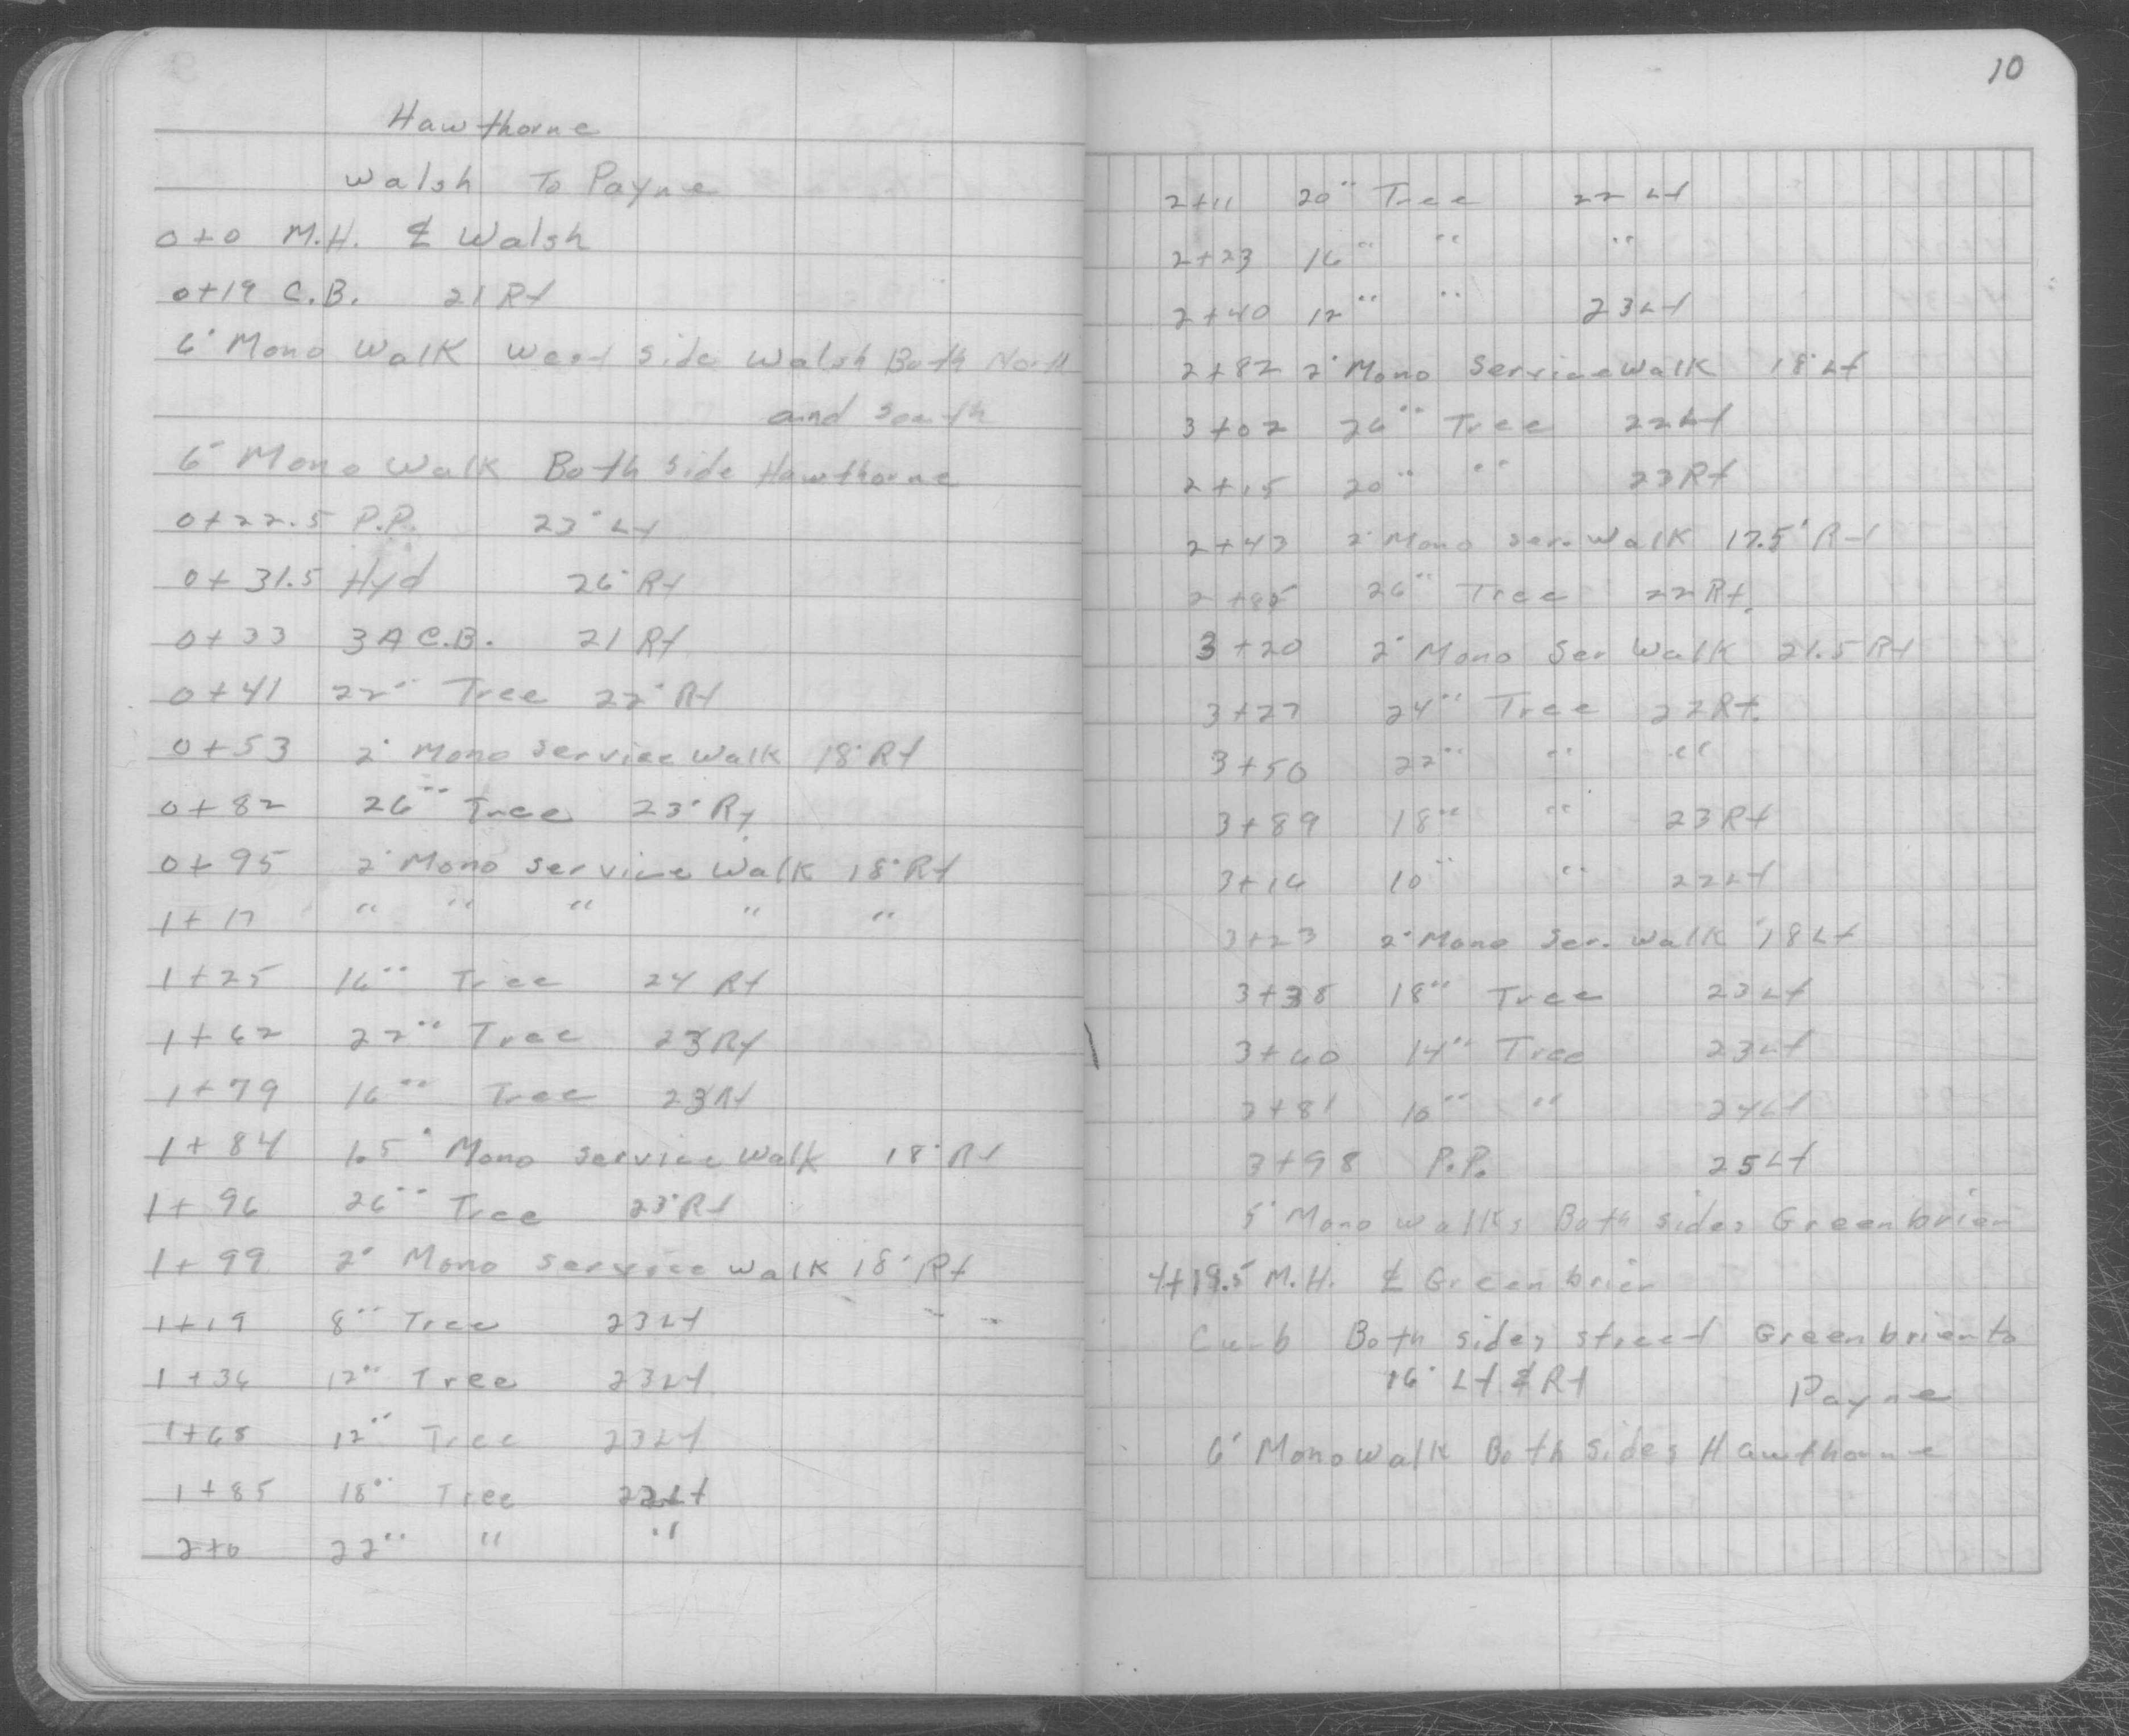 Hawthorne
Walsh To Payne
0+0 M.H. ℄ Walsh
0+19 C.B. 21 Rt
6' Mono Walk West side Walsh Both North
and South
6' Mono Walk Both Side Hawthorne
0+22.5 P.P. 23' Lt
0+31.5 Hyd 26' Rt
0+33 3A C.B. 21 Rt
0+41 22" Tree 22' Rt
0+53 2' Mono Service Walk 18' Rt
0+82 26" Tree 23' Rt
0+95 2' Mono Service Walk 18' Rt
1+17 " " " " "
1+25 16" Tree 24 Rt
1+62 22" Tree 23 Rt
1+79 16" Tree 23 Rt
1+84 1.5' Mono Service Walk 18' Rt
1+96 26" Tree 23' Rt
1+99 2' Mono Service Walk 18' Rt
1+19 8" Tree 23 Lt
1+36 12" Tree 23 Lt
1+68 12" Tree 23 Lt
1+85 18" Tree 22 Lt
2+0 22" " "
10
2+11 20" Tree 22 Lt
2+23 16" " "
2+40 12" " 23 Lt
2+82 2' Mono Service Walk 18' Lt
3+02 26" Tree 22 Lt
2+15 20" " 23 Rt
2+43 2' Mono Ser. Walk 17.5' Rt
2+85 26" Tree 22 Rt.
3+20 2' Mono Ser Walk 21.5 Rt
3+27 24" Tree 22 Rt.
3+50 22" " "
3+89 18" " 23 Rt
3+16 10" " 22 Lt
3+23 2' Mono Ser. Walk 18 Lt
3+38 18" Tree 23 Lt
3+60 14" Tree 23 Lt
3+81 10" " 24 Lt
3+98 P.P. 25 Lt
5' Mono walks Both sides Greenbrier
4+19.5 M.H. ℄ Greenbrier
Curb Both sides street Greenbrier to
16' Lt & Rt Payne
6' Mono walk Both Sides Hawthorne